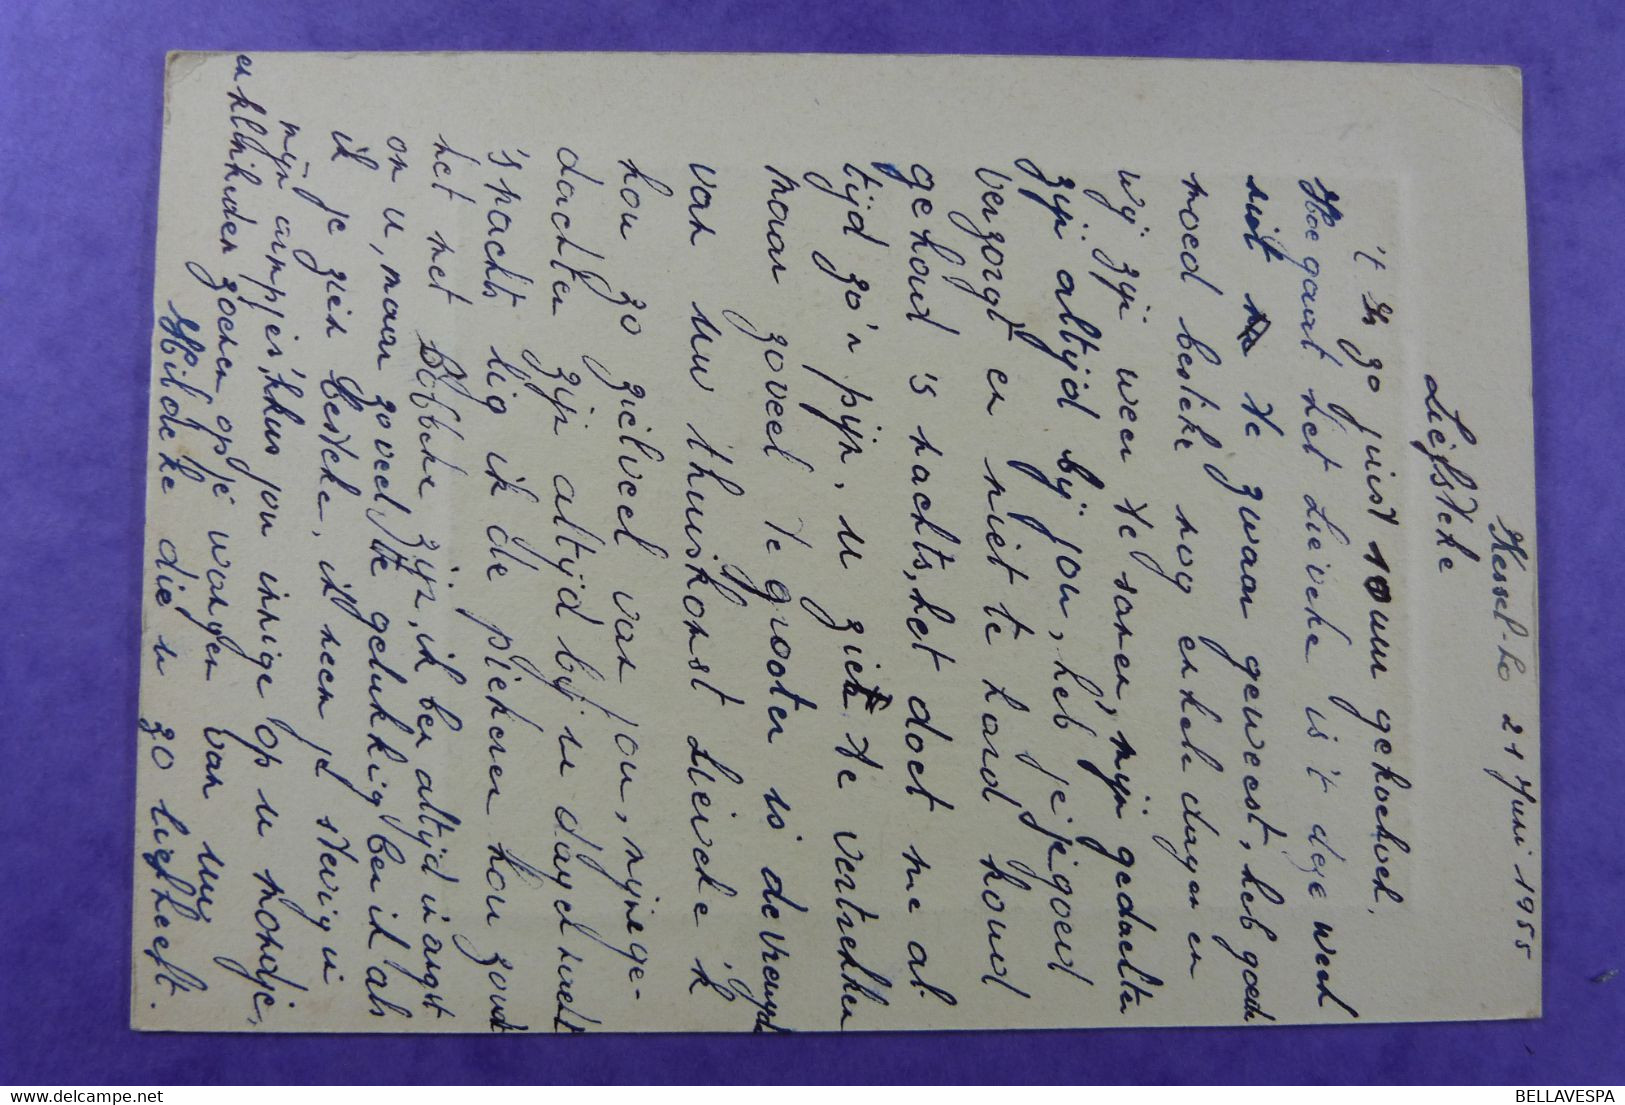 Kessel-Lo 21 Juni 1955
Liefsteke
't Is zo juist 10 uur gekoekoek.
Hoe gaat het Lieveke is 't deze week
niet te zwaar geweest, heb goede
moed besteke nog enkele dagen en
wij zijn weer te samen, mijn gedachten
zijn altijd bij jou, heb je je goed
verzorgd en niet te hard houd
gehoud 's nachts, het doet me al-
tijd zo'n pijn, u zien te vertrekken
maar zoveel te groter is de vreugde
van uw thuiskomst Lieveke ik
hou zo zielveel van jou, mijn ge-
dachten zijn altijd bij u dag en nacht
's nachts lig ik de plekken hou zoud
het met Bobbeke zijn, ik ben altijd in angst
om u, maar zoveel te gelukkig ben ik als
ik je zien besteke, ik neem je stevig in
mijn armpjes, kus jou innige op u mondje,
en klinkuden zoenen op je wangen van uw
Hildeke die u zo lief heeft.
BELLAVESPA